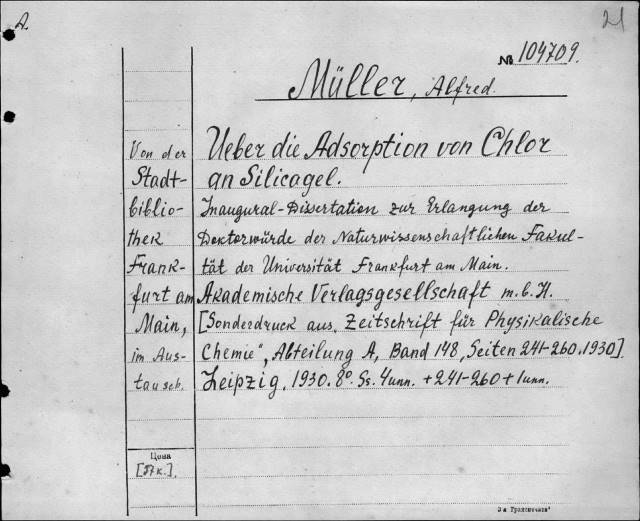 A.
21
№ 104709.
Müller, Alfred.
Von der
Stadt-
biblio-
thek
Frank-
furt am
Main,
im Aus-
tausch.
Ueber die Adsorption von Chlor
an Silicagel.
Inaugural-Dissertation zur Erlangung der
Doktorwürde der Naturwissenschaftlichen Fakul-
tät der Universität Frankfurt am Main.
Akademische Verlagsgesellschaft m.b.H.
[Sonderdruck aus „Zeitschrift für Physikalische
Chemie", Abteilung A, Band 148, Seiten 241-260, 1930].
Leipzig, 1930. 8º. Ss. 4unn. + 241-260 + 1unn.
Цена
[57к.].